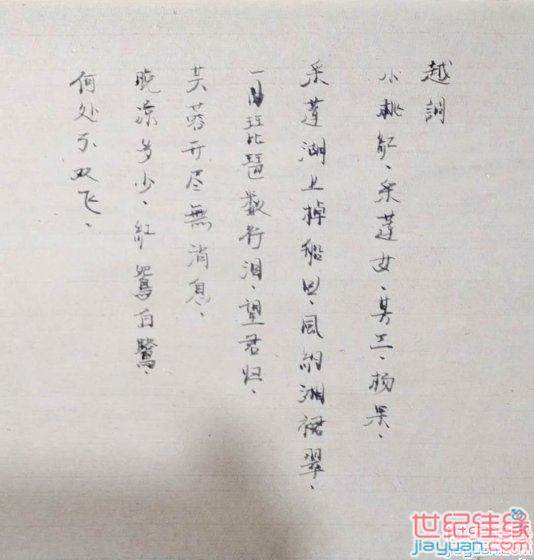 越調
小桃紅、采莲女、其三、杨果、
采莲湖上棹船回、風約湘裙翠、
一曲琵琶数行泪、望君归、
芙蓉开尽無消息、
晚凉多少、紅鴛白鷺、
何处不双飞、
世纪佳缘
jiayuan.com